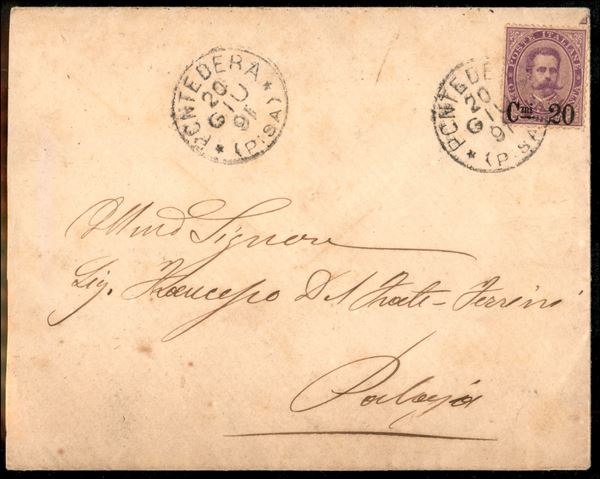 PONTEDERA
20
GIU
91
* (PISA) *
PONTEDERA
20
GIU
91
* (PISA
POSTE ITALIANE
Cmi 20
Illmo Signore
Sig. Francesco Del Frate-Ferrini
Palaja